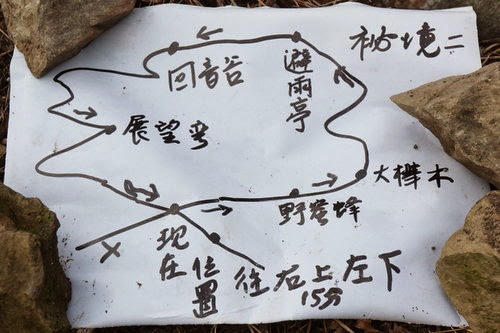 秘境二
回音谷
避雨亭
展望彎
大樺木
野巻蜂
現在位置
往右上左下
15分